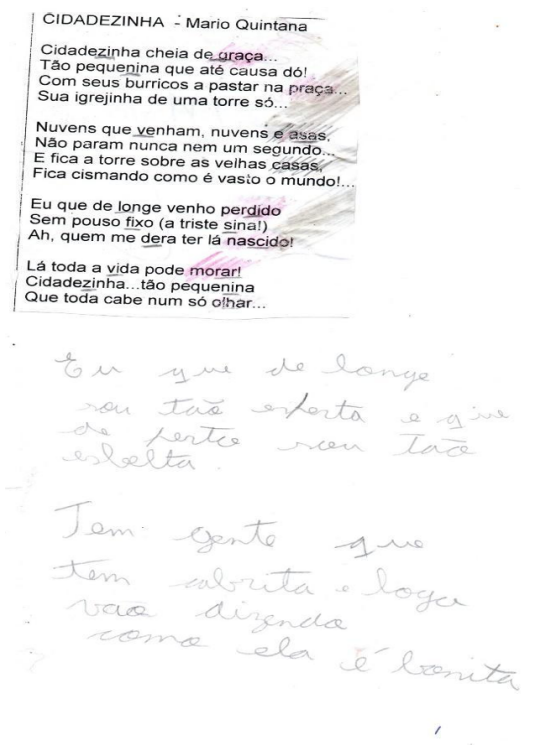 CIDADEZINHA - Mario Quintana
Cidadezinha cheia de graça...
Tão pequenina que até causa dó!
Com seus burricos a pastar na praça...
Sua igrejinha de uma torre só...
Nuvens que venham, nuvens e asas,
Não param nunca nem um segundo...
E fica a torre sobre as velhas casas,
Fica cismando como é vasto o mundo!...
Eu que de longe venho perdido
Sem pouso fixo (a triste sina!)
Ah, quem me dera ter lá nascido!
Lá toda a vida pode morar!
Cidadezinha...tão pequenina
Que toda cabe num só olhar...
Eu que de longe
sou tão esperta e que
de perto sou tão
esbelta.
Tem gente que
tem cabrita e logo
vão dizendo
como ela é bonita